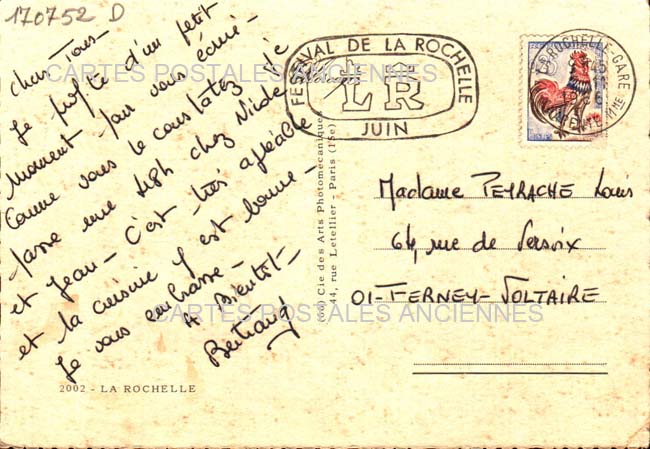 170752 D
chers Tous -
Je profite d'un petit
moment pour vous écrire -
Comme vous le constatez je
passe une chez
et Jean - C'est très agréable
et la cuisine y est bonne -
Je vous embrasse -
A Bientôt -
Bertrand
2002 - LA ROCHELLE
(66) Cie des Arts Photomecaniques
44, rue Letellier - Paris (15e)
FESTIVAL DE LA ROCHELLE
LR
JUIN
LA ROCHELLE-GARE
Madame PEYRACHE Louis
64, rue de Versoix
01-FERNEY-VOLTAIRE
CARTES POSTALES ANCIENNES
CARTES POSTALES ANCIENNES